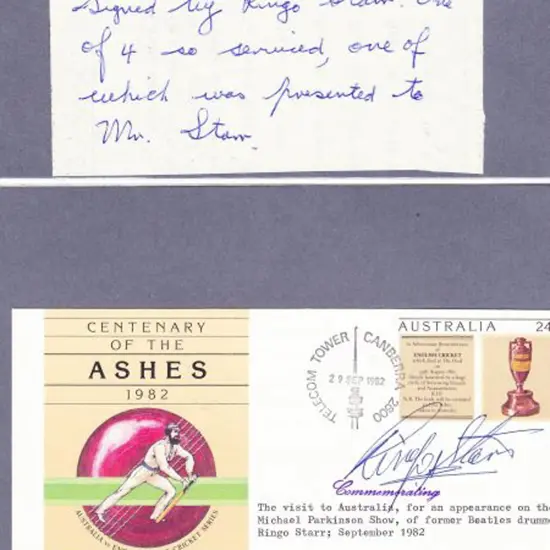 Signed by Ringo Starr. One
of 4 so serviced, one of
which was presented to
Mr. Starr.
CENTENARY
OF THE
ASHES
1982
AUSTRALIA 24
TELECOM TOWER CANBERRA 2600
29 SEP 1982
In Affectionate Remembrance
of
ENGLISH CRICKET
which died at The Oval
on
29th August 1882
R.I.P.
Ringo Starr
Commemorating
The visit to Australia, for an appearance on the
Michael Parkinson Show, of former Beatles drumme
Ringo Starr; September 1982
AUSTRALIA CRICKET SERIES